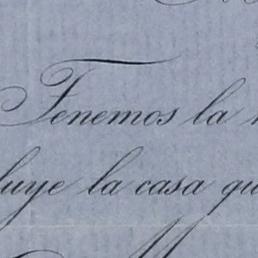 Tenemos la
luye la casa qu